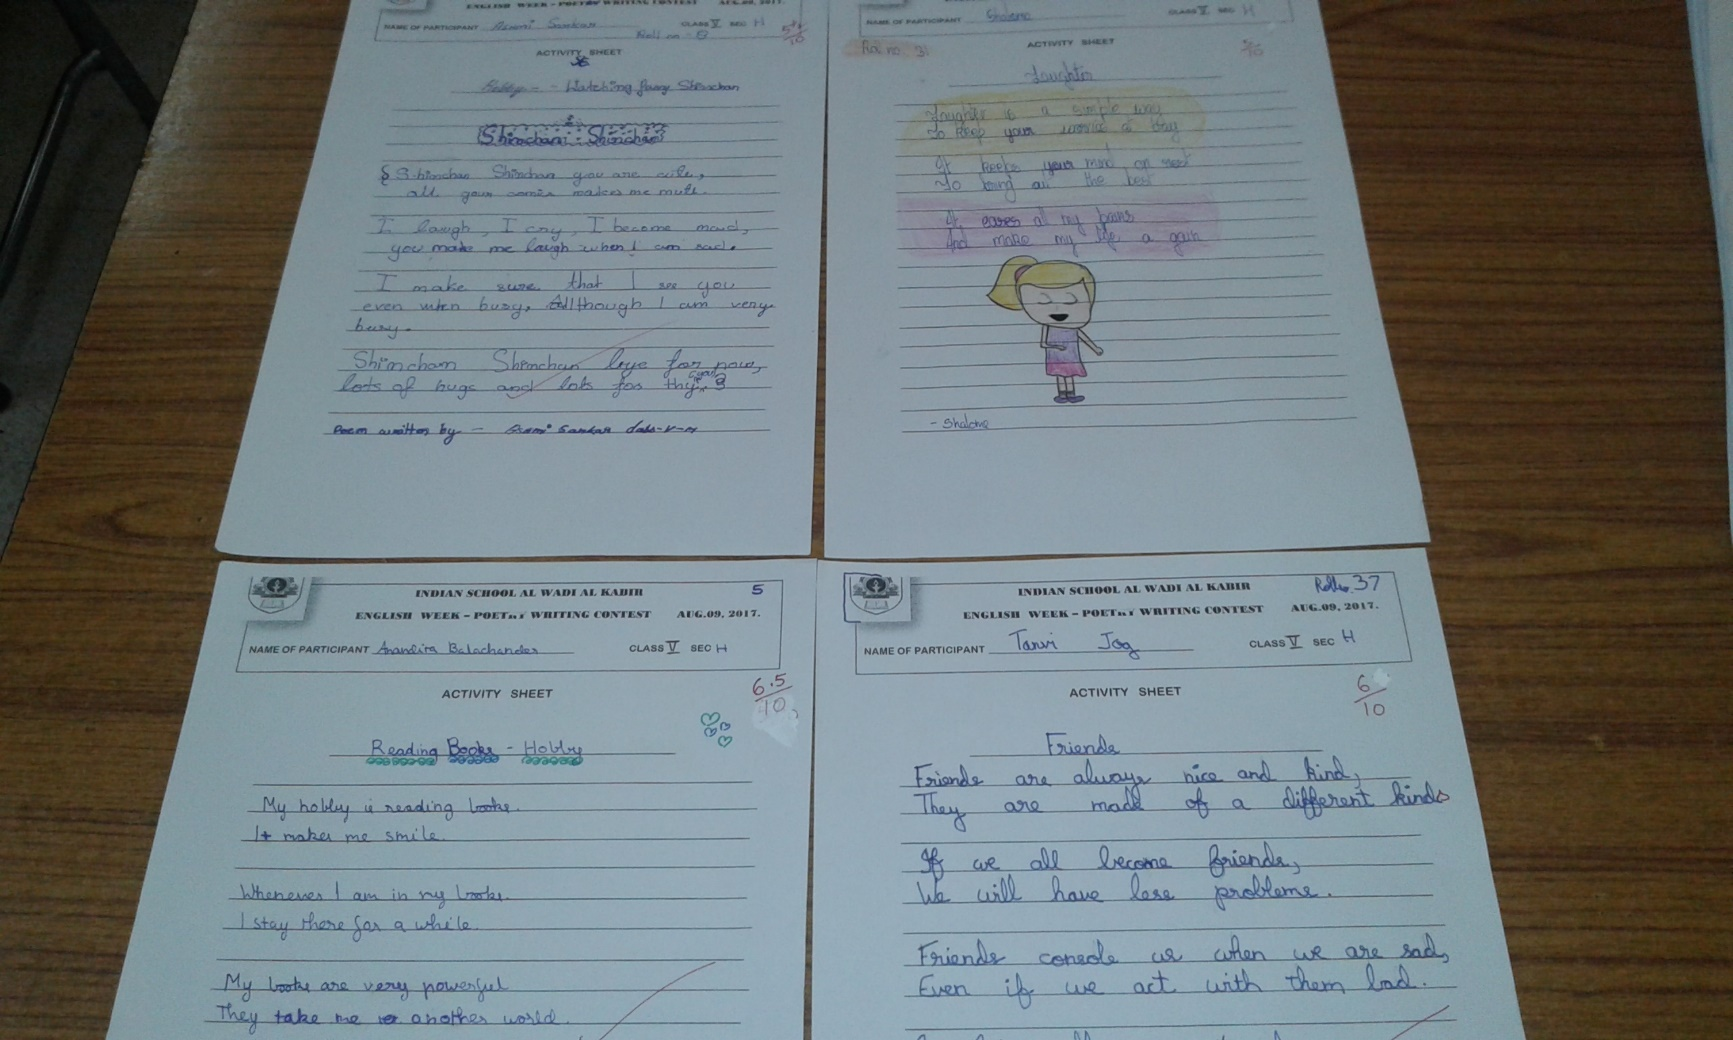 ENGLISH WEEK - POETRY WRITING CONTEST AUG.09, 2017.
NAME OF PARTICIPANT Sankar CLASS V SEC H
Roll no - 8
10
ACTIVITY SHEET
Hobby - - Watching funny Shinchan
Shinchan : Shinchan
Shinchan Shinchan you are cute,
all your comic makes me mute.
I laugh, I cry, I become mad,
you make me laugh when I am sad.
I make sure that I see you
even when busy, Allthough I am very
busy.
Shinchan Shinchan bye for now,
lots of hugs and lots for
Poem written by - Sankar class-V-H
NAME OF PARTICIPANT Shalome CLASS V SEC H
Roll no 31
ACTIVITY SHEET
Laughter
Laughter is a simple way
To keep your worries at bay
It keeps your mind on rest
To bring out the best
It eases all my pains
And make my life a gain
- Shalome
INDIAN SCHOOL AL WADI AL KABIR 5
ENGLISH WEEK – POETRY WRITING CONTEST AUG.09, 2017.
NAME OF PARTICIPANT Anandita Balachander CLASS V SEC H
ACTIVITY SHEET
6.5
10
Reading Books - Hobby
My hobby is reading books.
It makes me smile.
Whenever I am in my books.
I stay there for a while.
My books are very powerful
They take me to another world.
INDIAN SCHOOL AL WADI AL KABIR Roll no. 37
ENGLISH WEEK – POETRY WRITING CONTEST AUG.09, 2017.
NAME OF PARTICIPANT Tanvi Jog CLASS V SEC H
ACTIVITY SHEET
6
10
Friends
Friends are always nice and kind,
They are made of a different kinds
If we all become friends,
We will have less problems.
Friends console us when we are sad,
Even if we act with them bad.